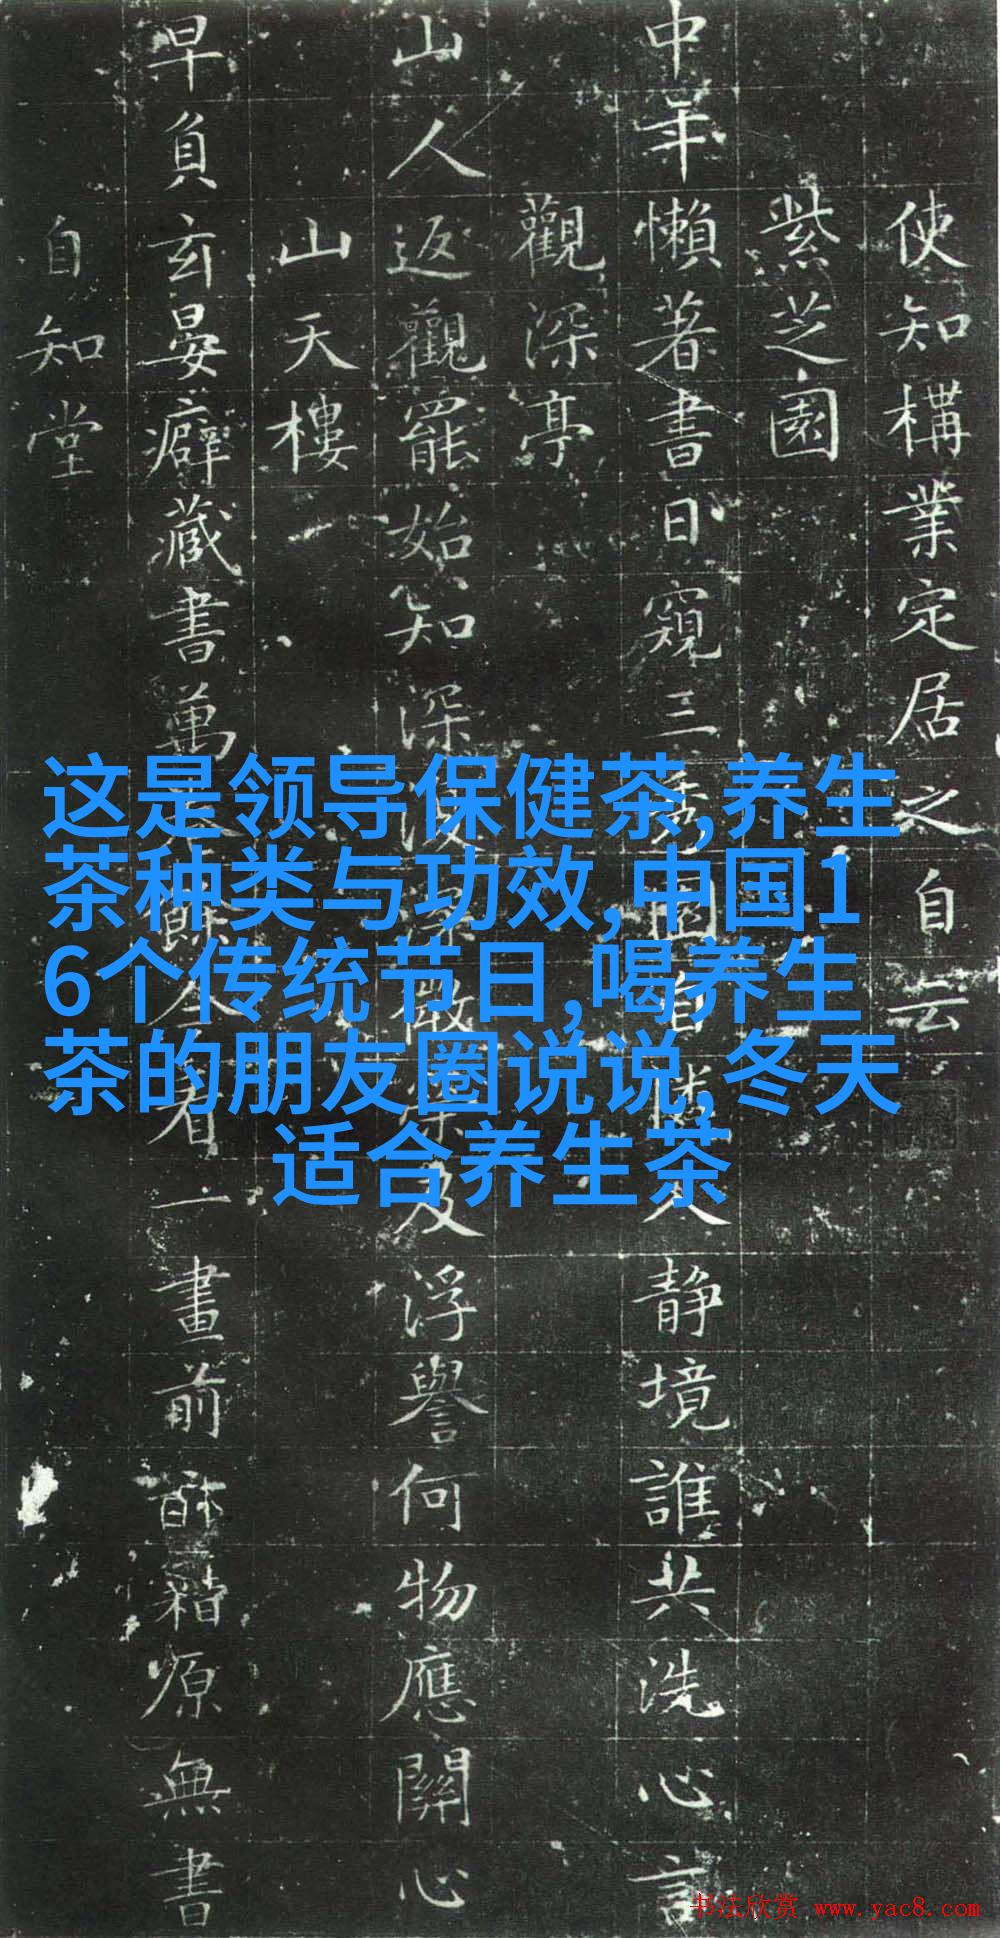 使知構業定居之自云
紫芝園
中年懶著書日窺三園自人靜境誰共洗心言
觀深亭
山人返觀罷始知深及浮譽何物應關心
山天樓
早負玄晏癖藏書萬餘今看一畫前籍原無書
自知堂
这是领导保健茶,养生
茶种类与功效,中国1
6个传统节日,喝养生
茶的朋友圈说说,冬天
适合养生茶
书法欣赏 www.yac8.com